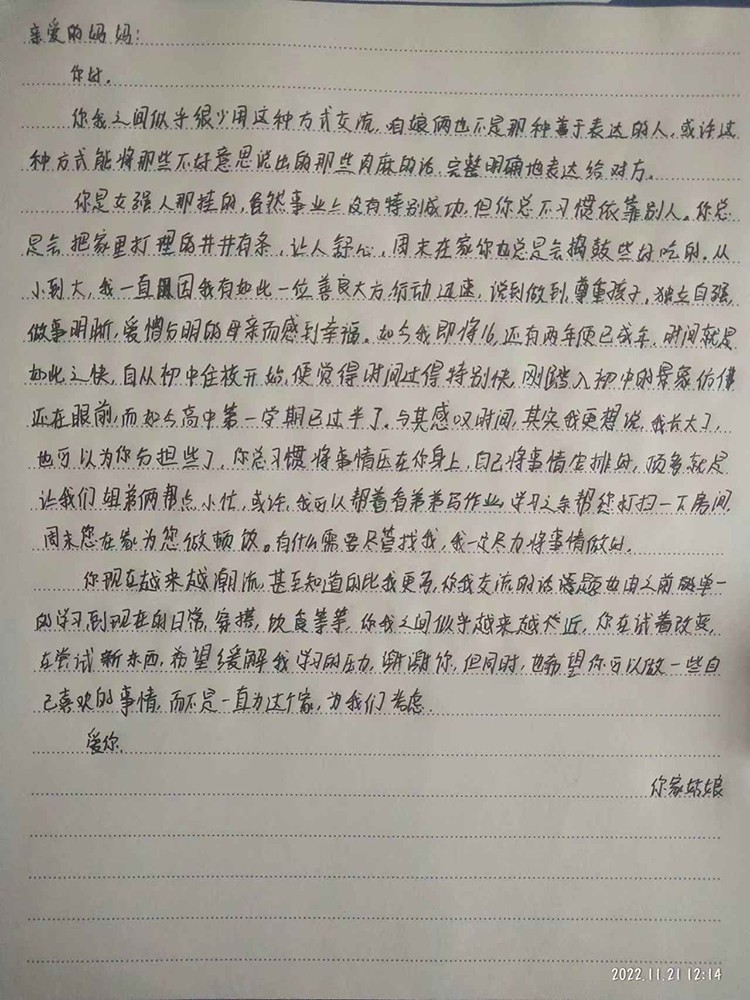 亲爱的妈妈:
你好。
你我之间似乎很少用这种方式交流,咱娘俩也不是那种善于表达的人,或许这
种方式能将那些不好意思说出的那些肉麻的话,完整明确地表达给对方。
你是女强人那挂的,虽然事业上没有特别成功,但你总不习惯依靠别人。你总
是会把家里打理的井井有条,让人舒心,周末在家你也总是会捣鼓些好吃的。从
小到大,我一直因我有如此一位善良大方,行动迅速,说到做到,尊重孩子,独立自强,
做事明晰,爱憎分明的母亲而感到幸福。如今我即将16,还有两年便已成年,时间就是
如此之快,自从初中住校开始,便觉得时间过得特别快,刚踏入初中的景象仿佛
还在眼前,而如今高中第一学期已过半了。与其感叹时间,其实我更想说,我长大了,
也可以为你分担些了,你总习惯将事情压在你身上,自己将事情安排好,顶多就是
让我们姐弟俩帮点小忙,或许,我可以帮着看弟弟写作业,学习之余帮您打扫一下房间,
周末您在家为您做顿饭。有什么需要尽管找我,我一定尽力将事情做好。
你现在越来越潮流,甚至知道的比我更多,你我交流的话题由之前的单一
的学习到现在的日常,穿搭,饮食等等,你我之间似乎越来越近,你在试着改变,
在尝试新东西,希望缓解我学习的压力,谢谢你,但同时,也希望你可以做一些自
己喜欢的事情,而不是一直为这个家,为我们考虑。
爱你。
你家姑娘
2022.11.21 12:14